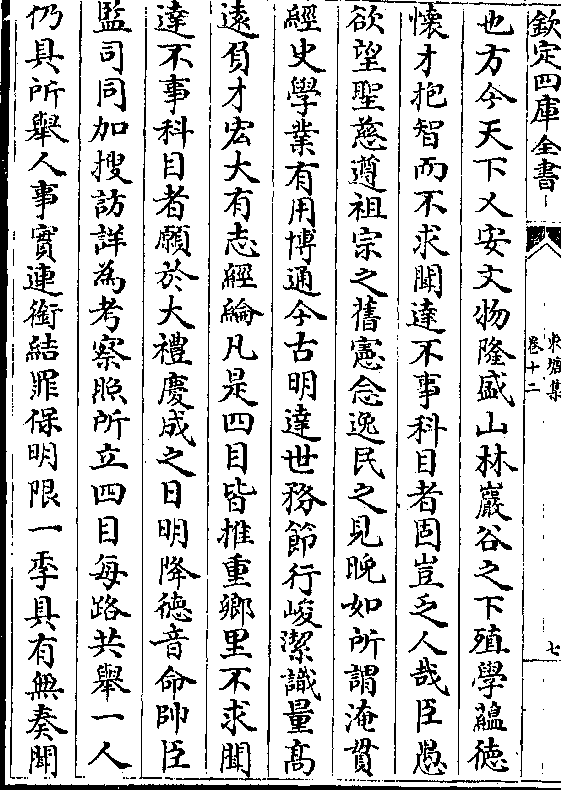 欽定四庫全書
東塘集
卷十二
七
也方今天下乂安文物隆盛山林巖谷之下殖學蘊德
懷才抱智而不求聞達不事科目者固豈乏人哉臣愚
欲望聖慈遵祖宗之舊憲念逸民之見晚如所謂淹貫
經史學業有用博通今古明達世務節行峻潔識量高
遠負才宏大有志經綸凡是四目皆推重鄉里不求聞
達不事科目者願於大禮慶成之日明降德音命帥臣
監司同加搜訪詳為考察照所立四目每路共舉一人
仍具所舉人事實連銜結罪保明限一季具有無奏聞